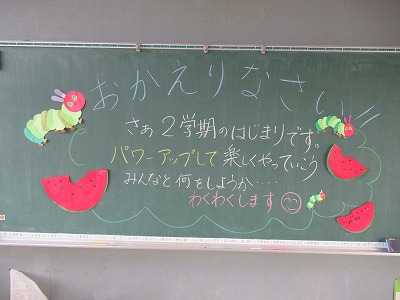 おかえりなさい!!
さぁ2学期のはじまりです。
パワーアップして楽しくやっていこう
みんなと何をしようか‥‥
わくわくします